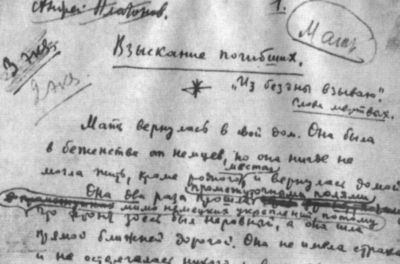 Андрей Платонов.
1.
Мать
3 экз
2 экз.
Взыскание погибших.
„Из бездны взываю".
Слова мертвых.
Мать вернулась в свой дом. Она была
в беженстве от немцев, но она нигде не
могла жить, кроме родного местам и вернулась домой
Она два раза прошла промежуточными полями
мимо немецких укреплений, потому
что фронт здесь был неровный, а она шла
прямой ближней дорогой. Она не имела страха
и не остерегалась никого